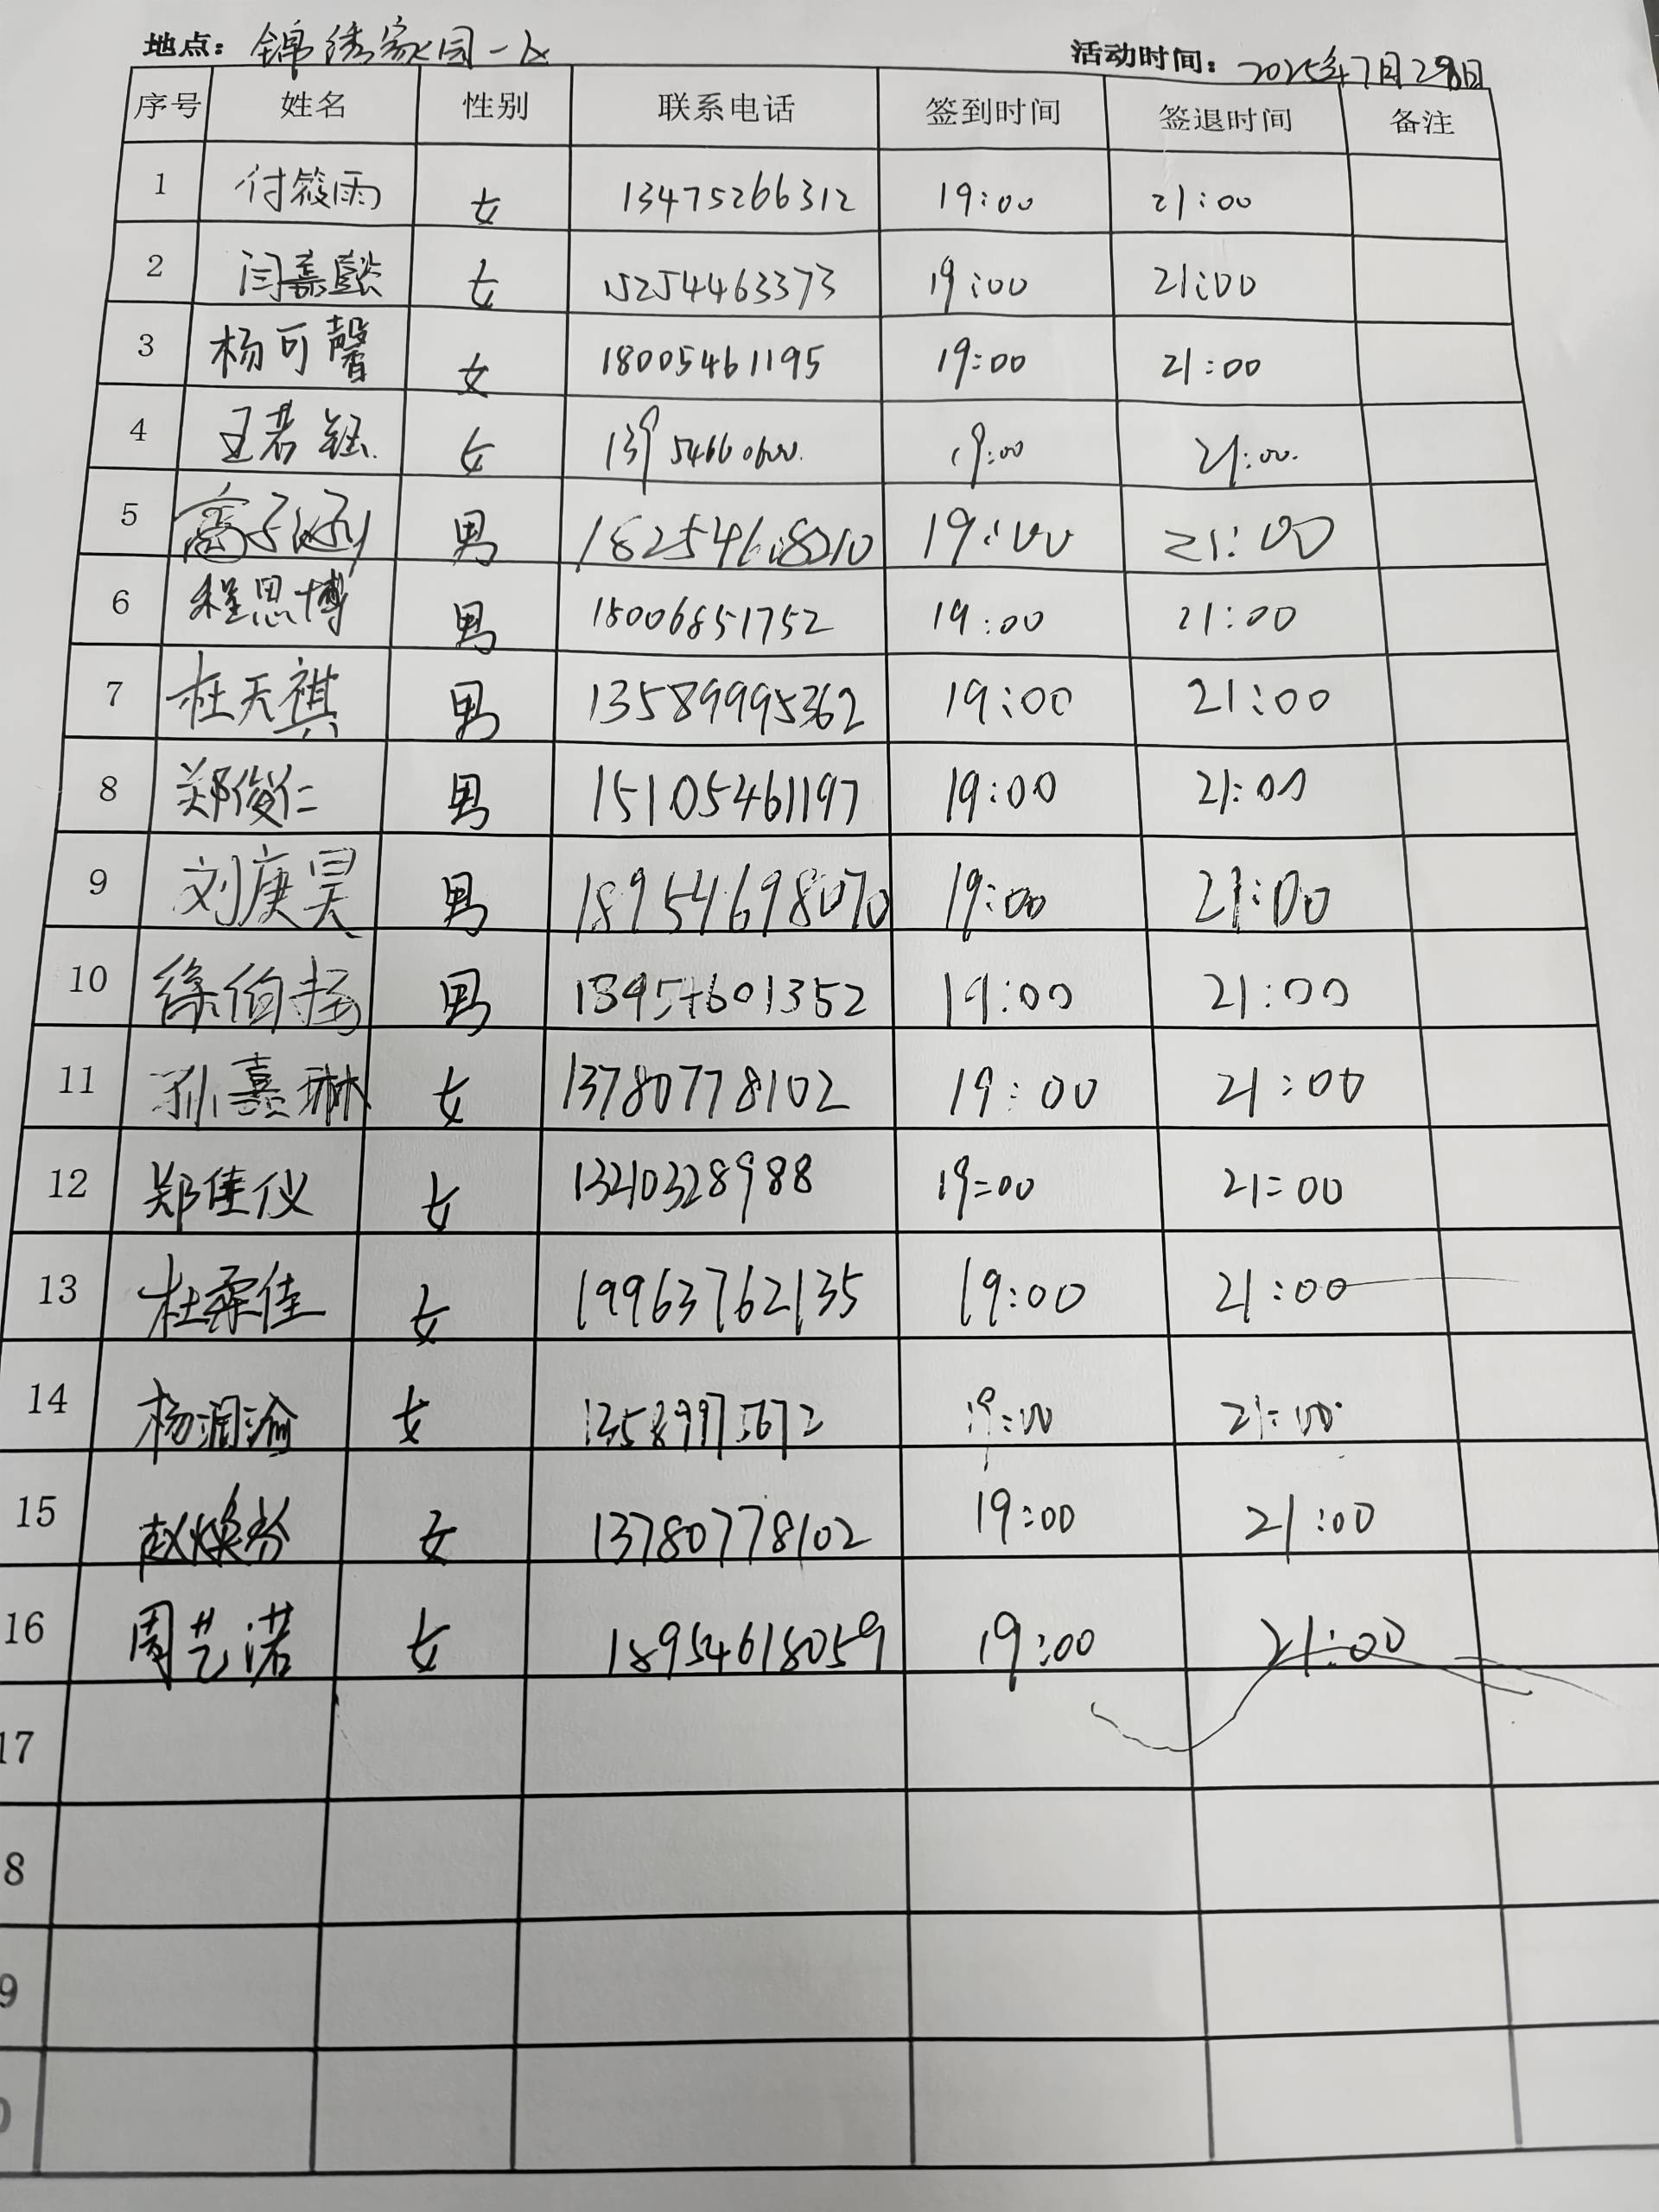 地点：锦绣家园一区 活动时间：2025年7月28日
序号 姓名 性别 联系电话 签到时间 签退时间 备注
1 付筱雨 女 13475266312 19:00 21:00
2 闫嘉懿 女 15254463373 19:00 21:00
3 杨可馨 女 18005461195 19:00 21:00
4 王若钰 女 19:00 21:00
5 高子涵 男 18254618210 19:00 21:00
6 程思博 男 18006851752 19:00 21:00
7 杜天祺 男 13589995362 19:00 21:00
8 郑俊仁 男 15105461197 19:00 21:00
9 刘庚昊 男 18954698070 19:00 21:00
10 徐伯扬 男 18954601352 19:00 21:00
11 孙嘉琳 女 13780778102 19:00 21:00
12 郑佳仪 女 13210328988 19:00 21:00
13 杜柔佳 女 19963762135 19:00 21:00
14 杨润渝 女 19:00 21:00
15 赵焕 女 13780778102 19:00 21:00
16 周艺诺 女 18954618059 19:00 21:00
17
8
9
0